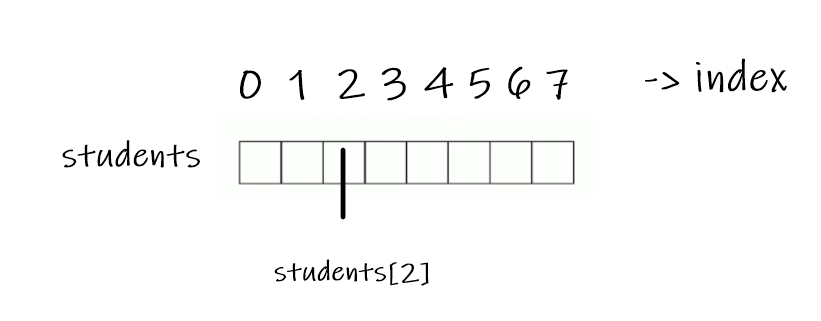 0 1 2 3 4 5 6 7 -> index
students
students[2]